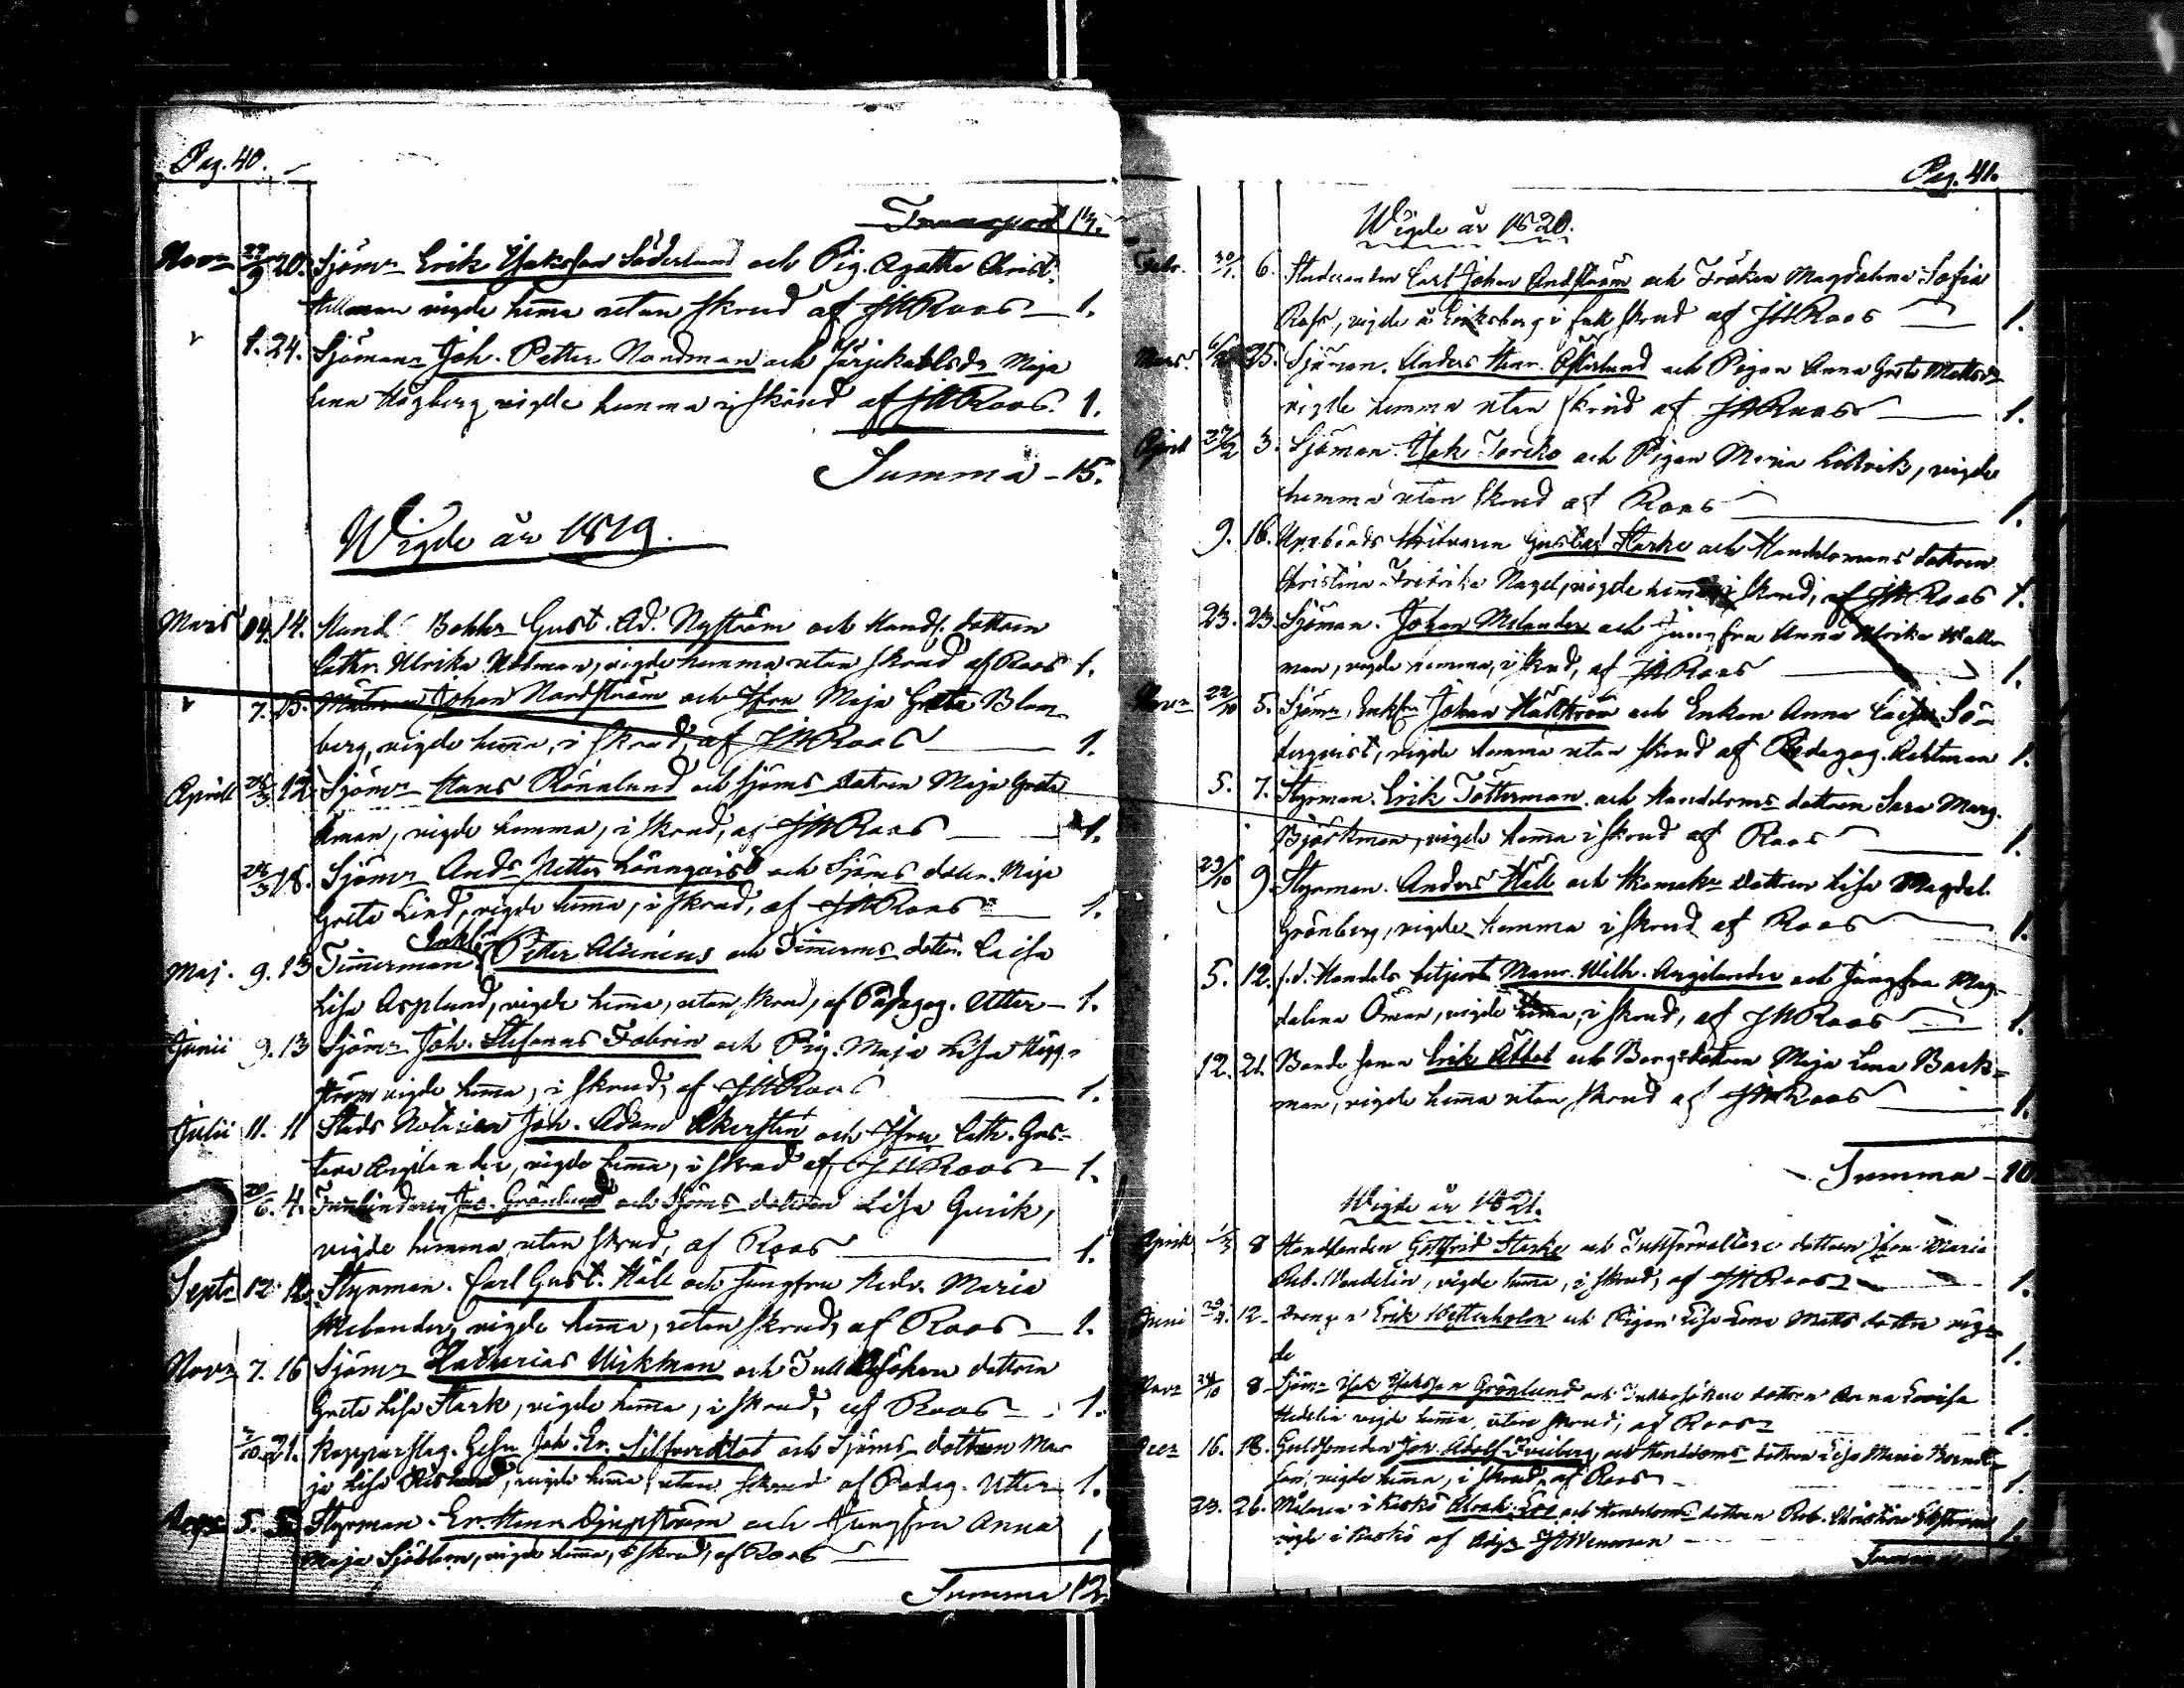 Pag. 40.
Transport 13.
Novr 27/9 20. Sjömn Erik Isaksson Söderlund och Pig. Agatha Christ.
Tillman vigde hemma utan skrud af JHRoos 1.
1. 24. Sjöman Joh. Petter Nordman och Färjekarlsdr Maja
Lena Högberg vigde hemma i skrud af JHRoos. 1.
Summa - 15.
Wigde år 1819.
Mars 14. 14. Hand. Bokhr Gust. Ad. Nyström och Handl. dottren
Cathr. Ulrika Widman, vigde hemma utan skrud af Roos 1.
7. 15. Johan Nordström och Jfru Maja Greta Blom-
berg, vigde hema, i skrud, af JHRoos 1.
Aprill 28/3 12. Sjömn Hans Rönnlund och Sjöms dottren Maja Greta
Åman, vigde hemma, i skrud, af JHRoos 1.
28/3 18. Sjömn Ands Petter Lönnqvist och Sjöms dottr. Maja
Greta Lind, vigde hema, i skrud, af JHRoos 1.
Maj. 9. 13 Timmerman Enkln Petter Alcenius och Timerms dottr. Caisa
Lisa Asplund, vigde hema, utan skrud, af Pædagog. Utter 1.
Junii 9. 13 Sjömn Joh. Stefanus Fabrin och Pig. Maja Lisa Hägg-
ström vigde hema, i skrud, af JHRoos 1.
Julii 11. 11 Stads Notarien Joh. Adam Åkerstén och Jfru Cath. Gus-
tava Argilander, vigde hema, i skrud af JHRoos 1.
20/6. 4. Jac. Grönlund och Sjöms dottren Lisa Gurik,
vigde hemma utan skrud, af Roos 1.
Septr 12. 12. Styrman. Carl Gust. Häll och Jungfru Hedv. Maria
Melander, vigde hema, utan skrud, af Roos 1.
Novr 7. 16 Sjömn Zacharias Wikman och Tull Besökare dottren
Greta Lisa Stark, vigde hema, i skrud, af Roos 1.
21. Kopparslag. Gesn Joh. Er. Silfverstad och Sjöms dottren Ma-
ja Lisa, vigde hema, utan skrud af Pædag. Utter 1.
5. Styrman. Er. Henr. Djupström och Jungfru Anna
Maja Sjöblom, vigde hema, i skrud, af Roos 1
Summa 12.
Pag. 41.
Wigde år 1820.
Febr. 30/1. 6. Studeranden Carl Johan Lindström och Fröken Magdalena Sofia
Ross, vigde å Eriksberg i full skrud af JHRoos 1.
Mars. 25. Sjöman. Anders Henr. Österlund och Pigan Anna Greta Mattsdr
vigde hemma utan skrud af JHRoos 1.
April 27/2 3. Sjöman. Isak Toriko och Pigan Maria, vigde
hemma utan skrud af Roos 1.
9. 16. Uppbörds Skrivaren Gustaf Starke och Handelsmans dottren
Christina Fredrika Nagel, vigde hema i skrud, af JHRoos 1.
23. 23 Sjöman. Johan Melander och Jungfru Anna Ulrika Waller
man, vigde hemma, i skrud, af JHRoos 1.
Novr 22/10 5. Sjömn. Enkln Johan Hällström och Enkan Anna Caisa Sö-
derqvist, vigde hemma utan skrud af Pædagog. Rahtman 1.
5. 7. Styrman. Erik Tötterman och Handelsms dottren Sara Marg.
Björkman, vigde hema i skrud af Roos 1.
29/10 9. Styrman. Anders Häll och Skomakr dottren Lisa Magdal.
Grönberg, vigde hemma i skrud af Roos 1.
5. 12. f.d. Handels betjent Maur. Wilh. Argilander och Jungfru Mag-
dalena Öman, vigde hema, i skrud, af JHRoos 1.
12. 21. Bonde sonen Erik Abbel och Borgr dottren Maja Lena Back-
man, vigde hema utan skrud af JHRoos 1.
Summa - 10
Wigde år 1821.
Aprill 8 Handlanden Gottfrid Starke och Tullförvaltare dottren Jfru Maria
Reb. Wendelin, vigde hema, i skrud, af JHRoos 1.
Juni 12. Drengen Erik Wetterholm och Pigan Lisa Lena Matts dotter vig-
de 1.
Novr 28/10 8 Sjömn Isak Isaksson Grönlund och Tullbesökare dottren Anna Lovisa
Hedelin vigde hema utan skrud, af Roos 1.
Decr 16. 18. Guldsmeden Joh. Adolf Freiberg och Handelsms dottren Lisa Maria
vigde hema, i skrud, af Roos 1.
23. 26. Målaren i Kaskö och Handelsms dottren Reb. Christina
vigde i Kaskö af 1.
Summa